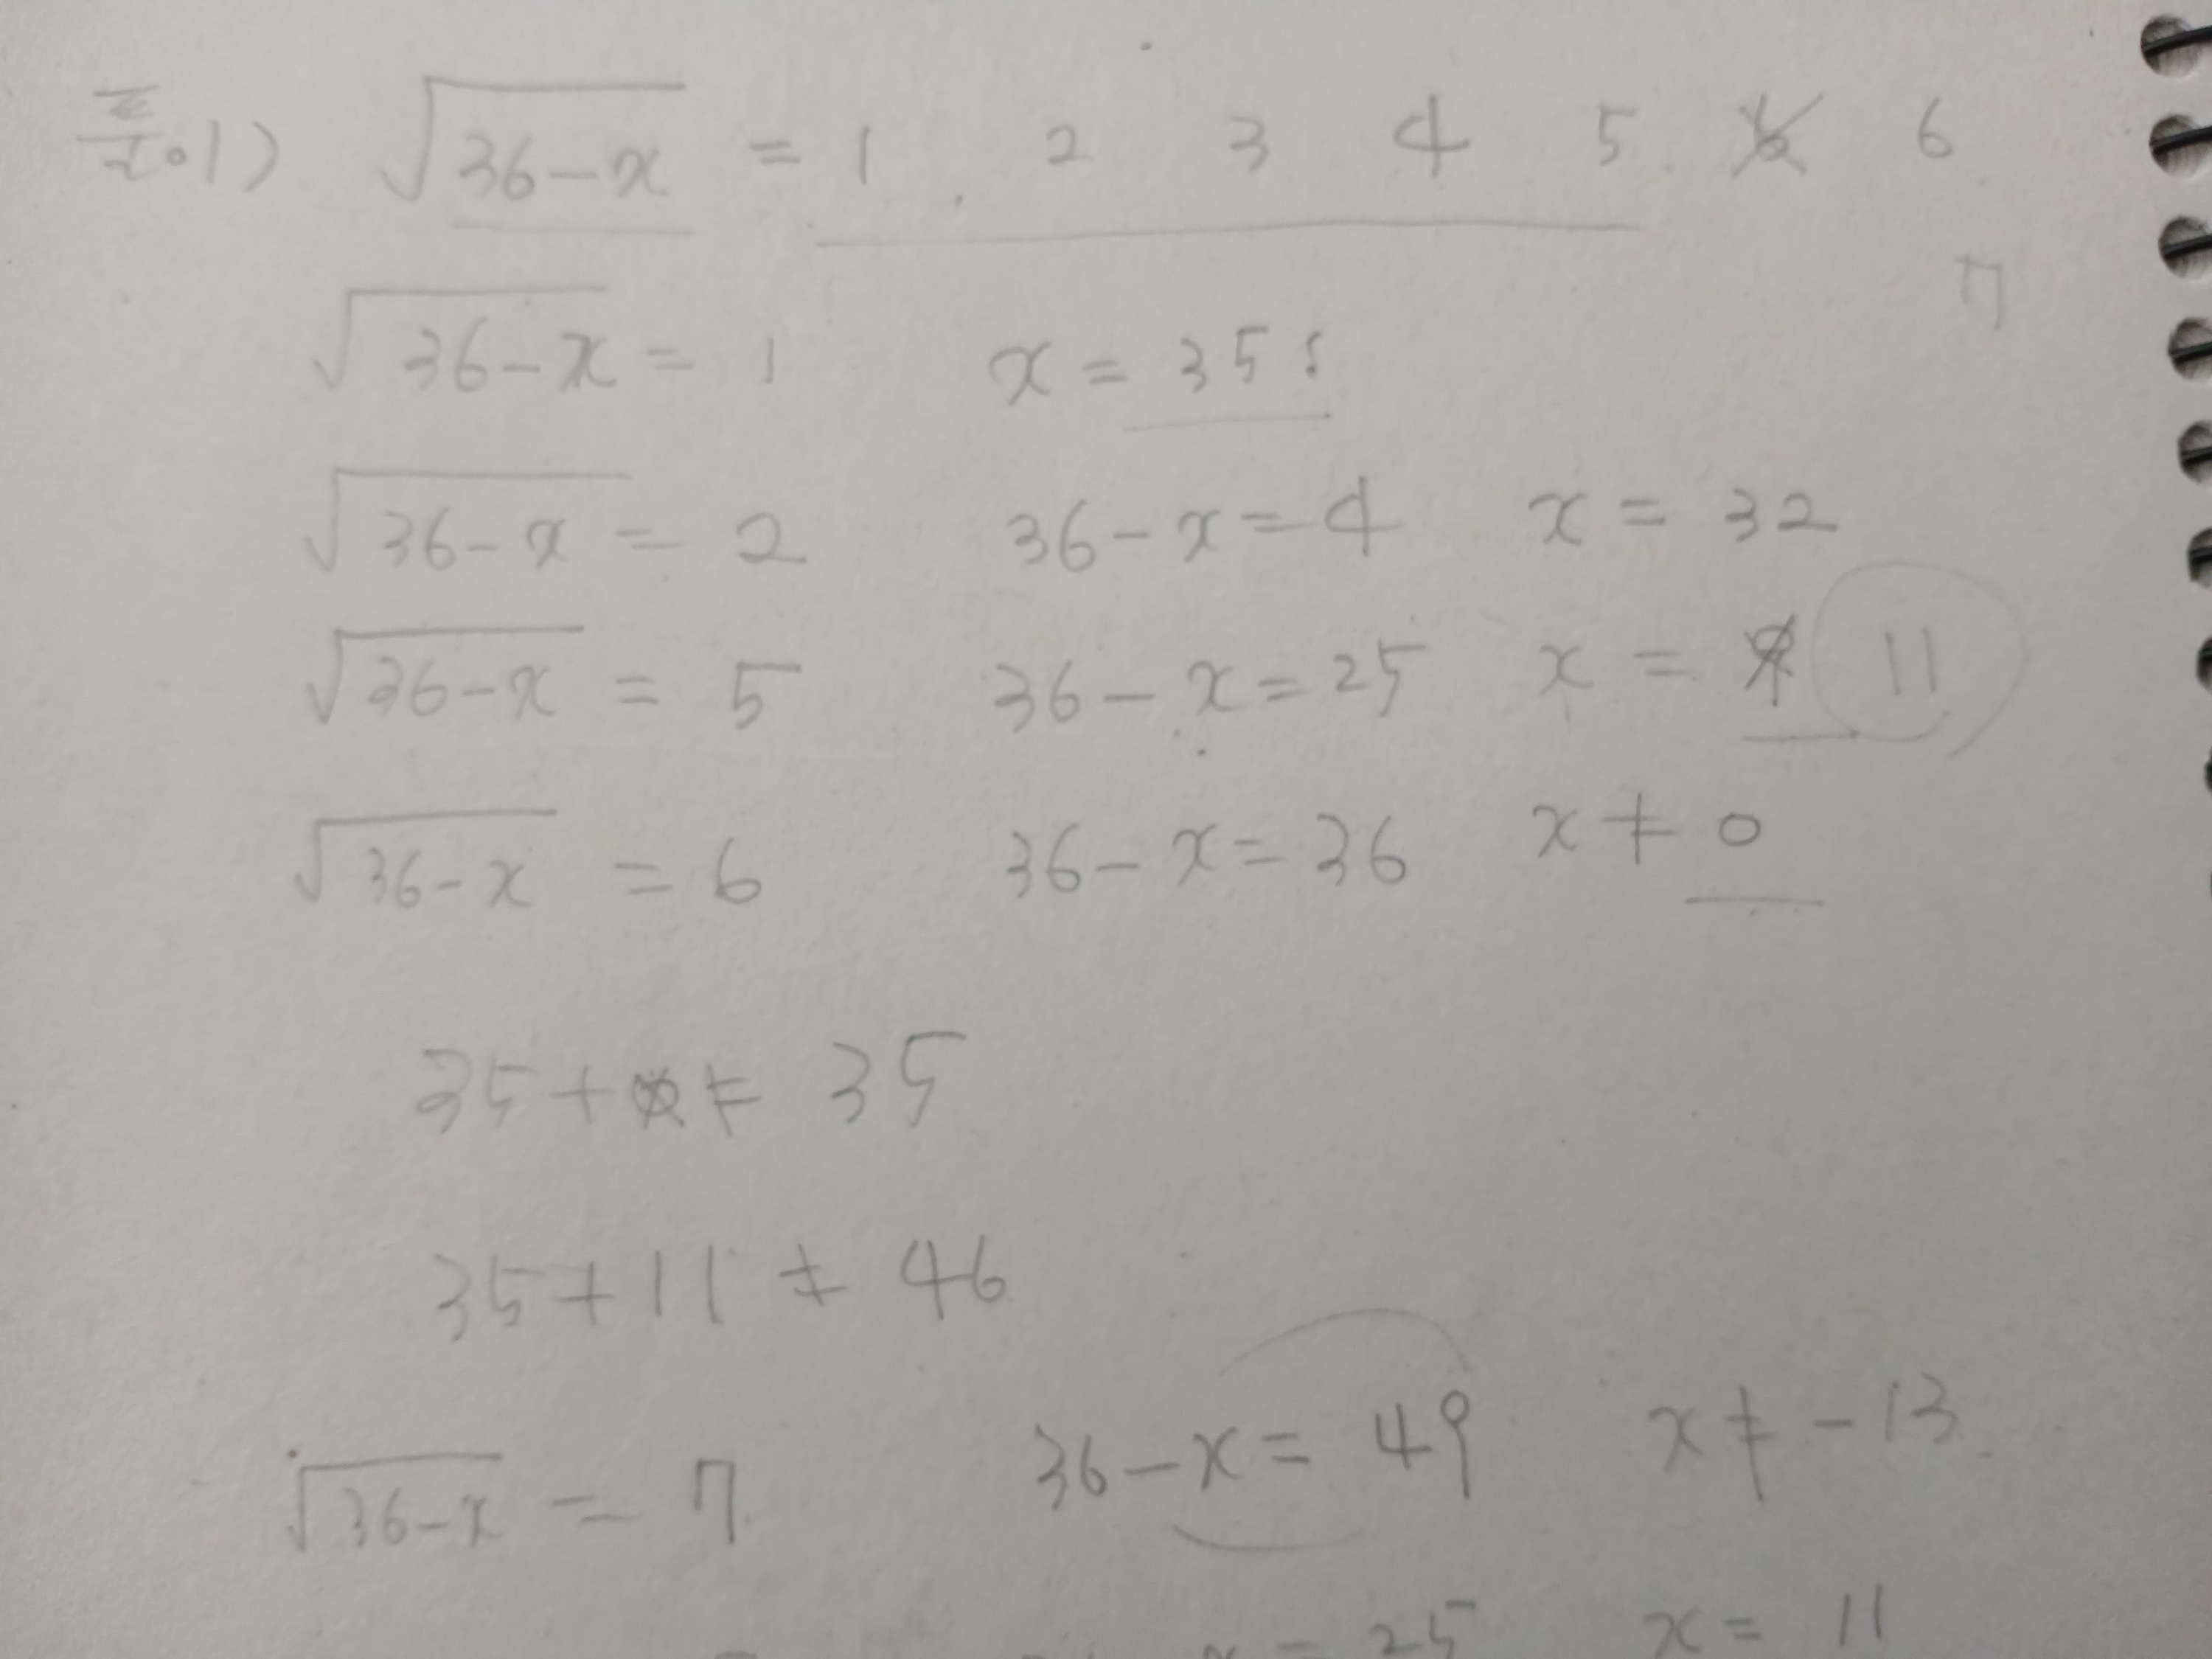 풀이) √36-x = 1, 2 3 4 5. 6 6
7
√36-x = 1 x = 35
√36-x = 2 36-x=4 x = 32
√36-x = 5 36-x=25 x = 9 11
√36-x = 6 36-x=36 x ≠ 0
35+0= 35
35+11 = 46
√36-x = 7 36-x= 49 x ≠ -13
x = 25 x = 11